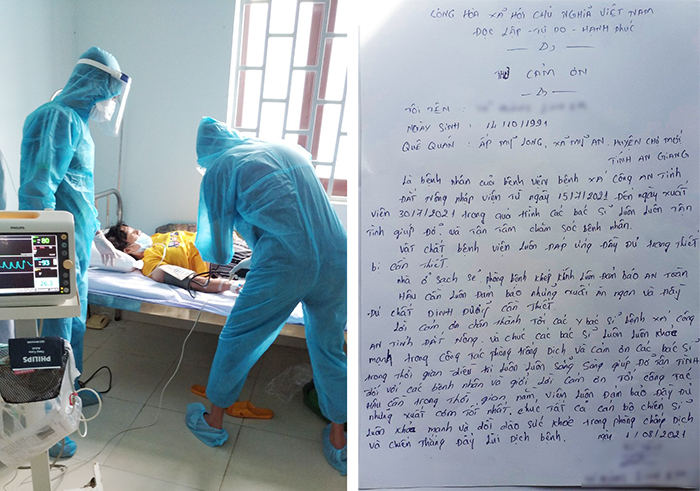 PHILIPS
80
93
PHILIPS
CỘNG HÒA XÃ HỘI CHỦ NGHĨA VIỆT NAM
ĐỘC LẬP - TỰ DO - HẠNH PHÚC
THƯ CẢM ƠN
TÔI TÊN :
NGÀY SINH : 14/10/1991
QUÊ QUÁN : ẤP MỸ LONG, XÃ MỸ AN, HUYỆN CHỢ MỚI
TỈNH AN GIANG
Là bệnh nhân của bệnh viện bệnh xá Công An tỉnh
ĐẤT Nồng nhập viện từ ngày 15/7/2021 Đến ngày xuất
viện 30/7/2021 trong quá trình các bác sĩ luôn luôn tân
tình giúp đỡ. và tân tâm chăm sóc bệnh nhân.
Vật chất bệnh viện luôn đáp ứng đầy đủ trang thiết
bị cần thiết.
Nhà ở sạch sẽ phòng bệnh khép kính luôn đảm bảo an toàn
Hậu cần luôn đảm bảo những xuất ăn ngon và đầy
đủ chất dinh dưỡng cần thiết.
Lời cảm ơn chân thành tới các y bác sĩ bệnh xá công
AN TỈNH ĐẤT Nồng và chúc các bác sĩ luôn luôn khỏe
mạnh trong công tác phòng trong dịch và cảm ơn các bác sĩ
trong thời gian điều trị luôn luôn sẵng sàng giúp đỡ tân tình
đối với các bệnh nhân và gửi lời cảm ơn tới công tác
Hậu cần trong thời gian nằm viện luôn đảm bảo đầy đủ
những xuất cơm tốt nhất. chúc tất cả cán bộ chiến sĩ
luôn khỏe mạnh và dồi dào sức khỏe trong phòng chống dịch
và chiến thắng đẩy lùi dịch bệnh. Ngày 1/08/2021